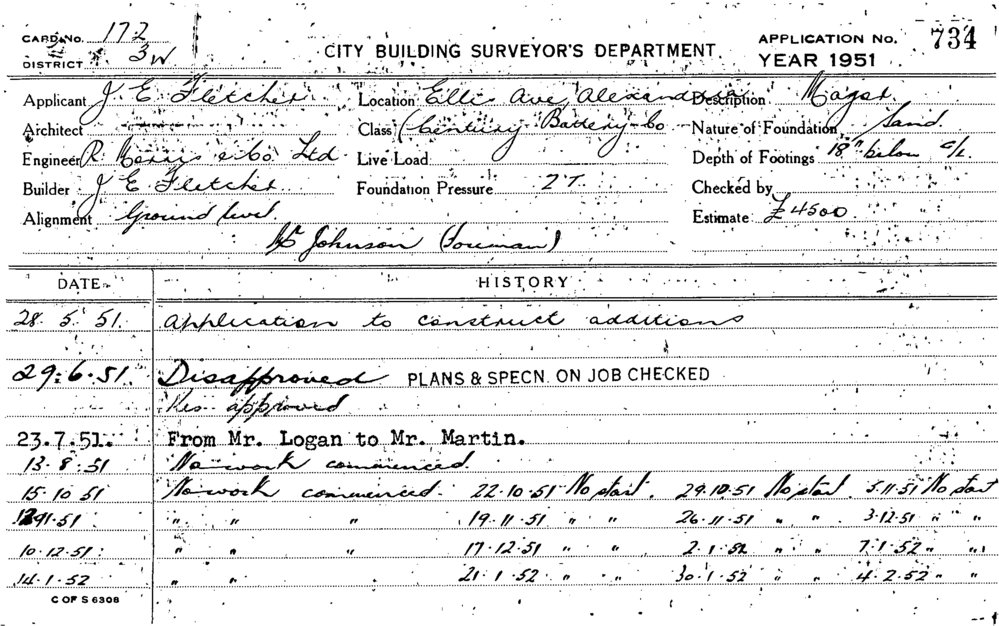 CARD No. 172
DISTRICT 3W
CITY BUILDING SURVEYOR'S DEPARTMENT
APPLICATION No. 734
YEAR 1951
Applicant J. E. Fletcher Location Ellis Ave, Alexandria Description Major
Architect Class (Century Battery Co Nature of Foundation Sand
Engineer R. & Co Ltd Live Load Depth of Footings 18" below G/L
Builder J E Fletcher Foundation Pressure 2T Checked by
Alignment Ground level Estimate £4500
Johnson (Foreman)
DATE HISTORY
28. 5. 51. Application to construct additions
29.6.51 Disapproved PLANS & SPECN. ON JOB CHECKED
Res. approved
23.7.51. From Mr. Logan to Mr. Martin.
13.8.51 No work commenced.
15.10.51 No work commenced. 22.10.51 No start. 29.10.51 No start. 5.11.51 No start
" " " 19.11.51 " " 26.11.51 " " 3.12.51 " "
10.12.51 " " " 17.12.51 " " 2.1.52 " " 7.1.52 " "
14.1.52 " " 21.1.52 " " 30.1.52 " " 4.2.52 " "
C OF S 6308